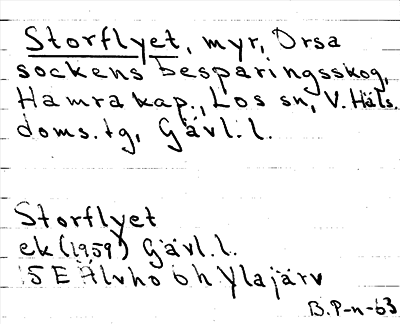 Storflyet, myr, Orsa
sockens besparingsskog,
Hamra kap., Los sn, V. Häls.
doms. tg, Gävl. l.
Storflyet
ek (1959) Gävl. l.
5 E Älvho 6 h Ylajärv
B. P-n-63